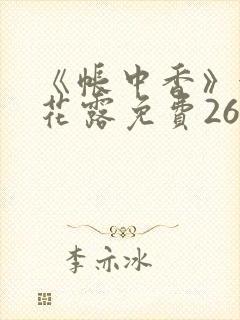 《帐中香》
花露免费26
李亦冰